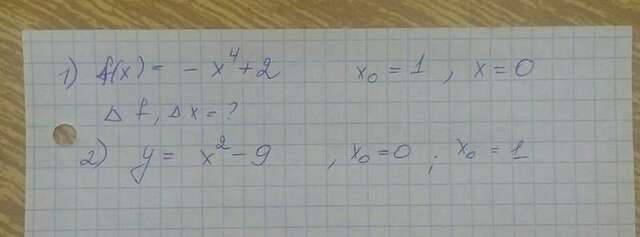 1) f(x) = - x⁴ + 2    x₀ = 1 , x = 0
Δ f , Δ x = ?
2) y = x² - 9    , x₀ = 0 ; x₀ = 1